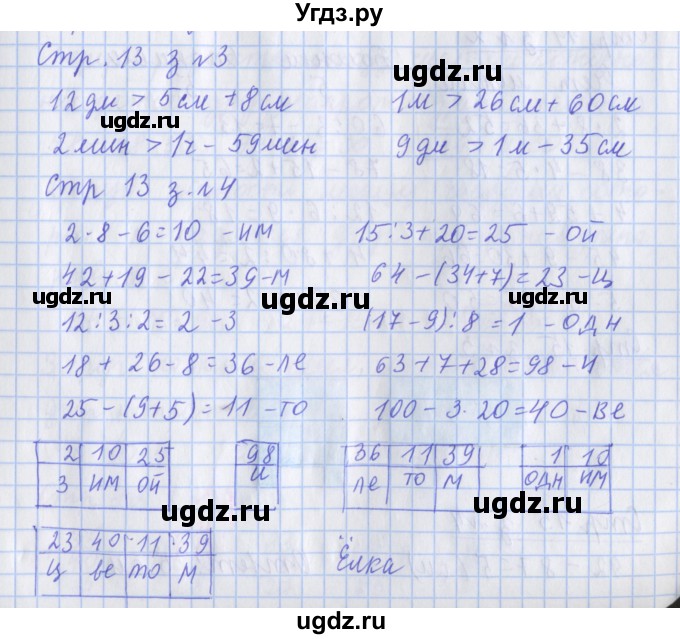 Угдз.ру
Стр. 13 з №3
ugdz.ru
12дм > 5см + 8см 1м > 26см + 60см
ugdz.ru ugdz.ru
2мин > 1ч - 59мин 9дм > 1м - 35см
Стр 13 з. №4
ugdz.ru
2·8-6=10 - им 15:3+20=25 - ой
42+19-22=39-м 64-(34+7)=23-ц
ugdz.ru ugdz.ru ugdz.ru
12:3:2=2-З (17-9):8=1 - одн
18+26-8=36-ле 63+7+28=98-и
25-(9+5)=11-то 100-3·20=40-ве
ugdz.ru ugdz.ru
2 10 25 98 36 11 39 1 10
З им ой и ле то м одн им
ugdz.ru ugdz.ru
23 40 11 39
ц ве то м Ёлка
ugdz.ru